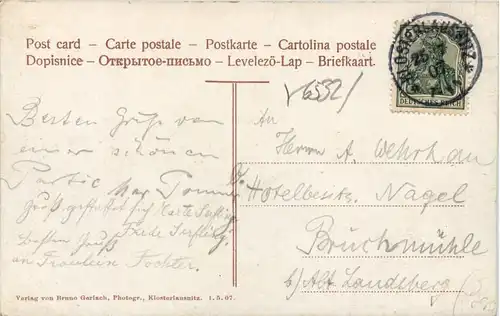 Post card – Carte postale – Postkarte – Cartolina postale
Dopisnice – Открытое-письмо – Levelezõ-Lap – Briefkaart.
6552/
DEUTSCHES REICH
Besten Gruß von
einer schönen
Partie
Gruß gestattet sich
besten Gruß Frede
an Fräulein Tochter.
An
Herrn A. Wehrhan
Hotelbesitz. Nagel
Bruchmühle
b/ Alt Landsberg
Verlag von Bruno Garlach, Photogr., Klosterlausnitz. 1. 5. 07.